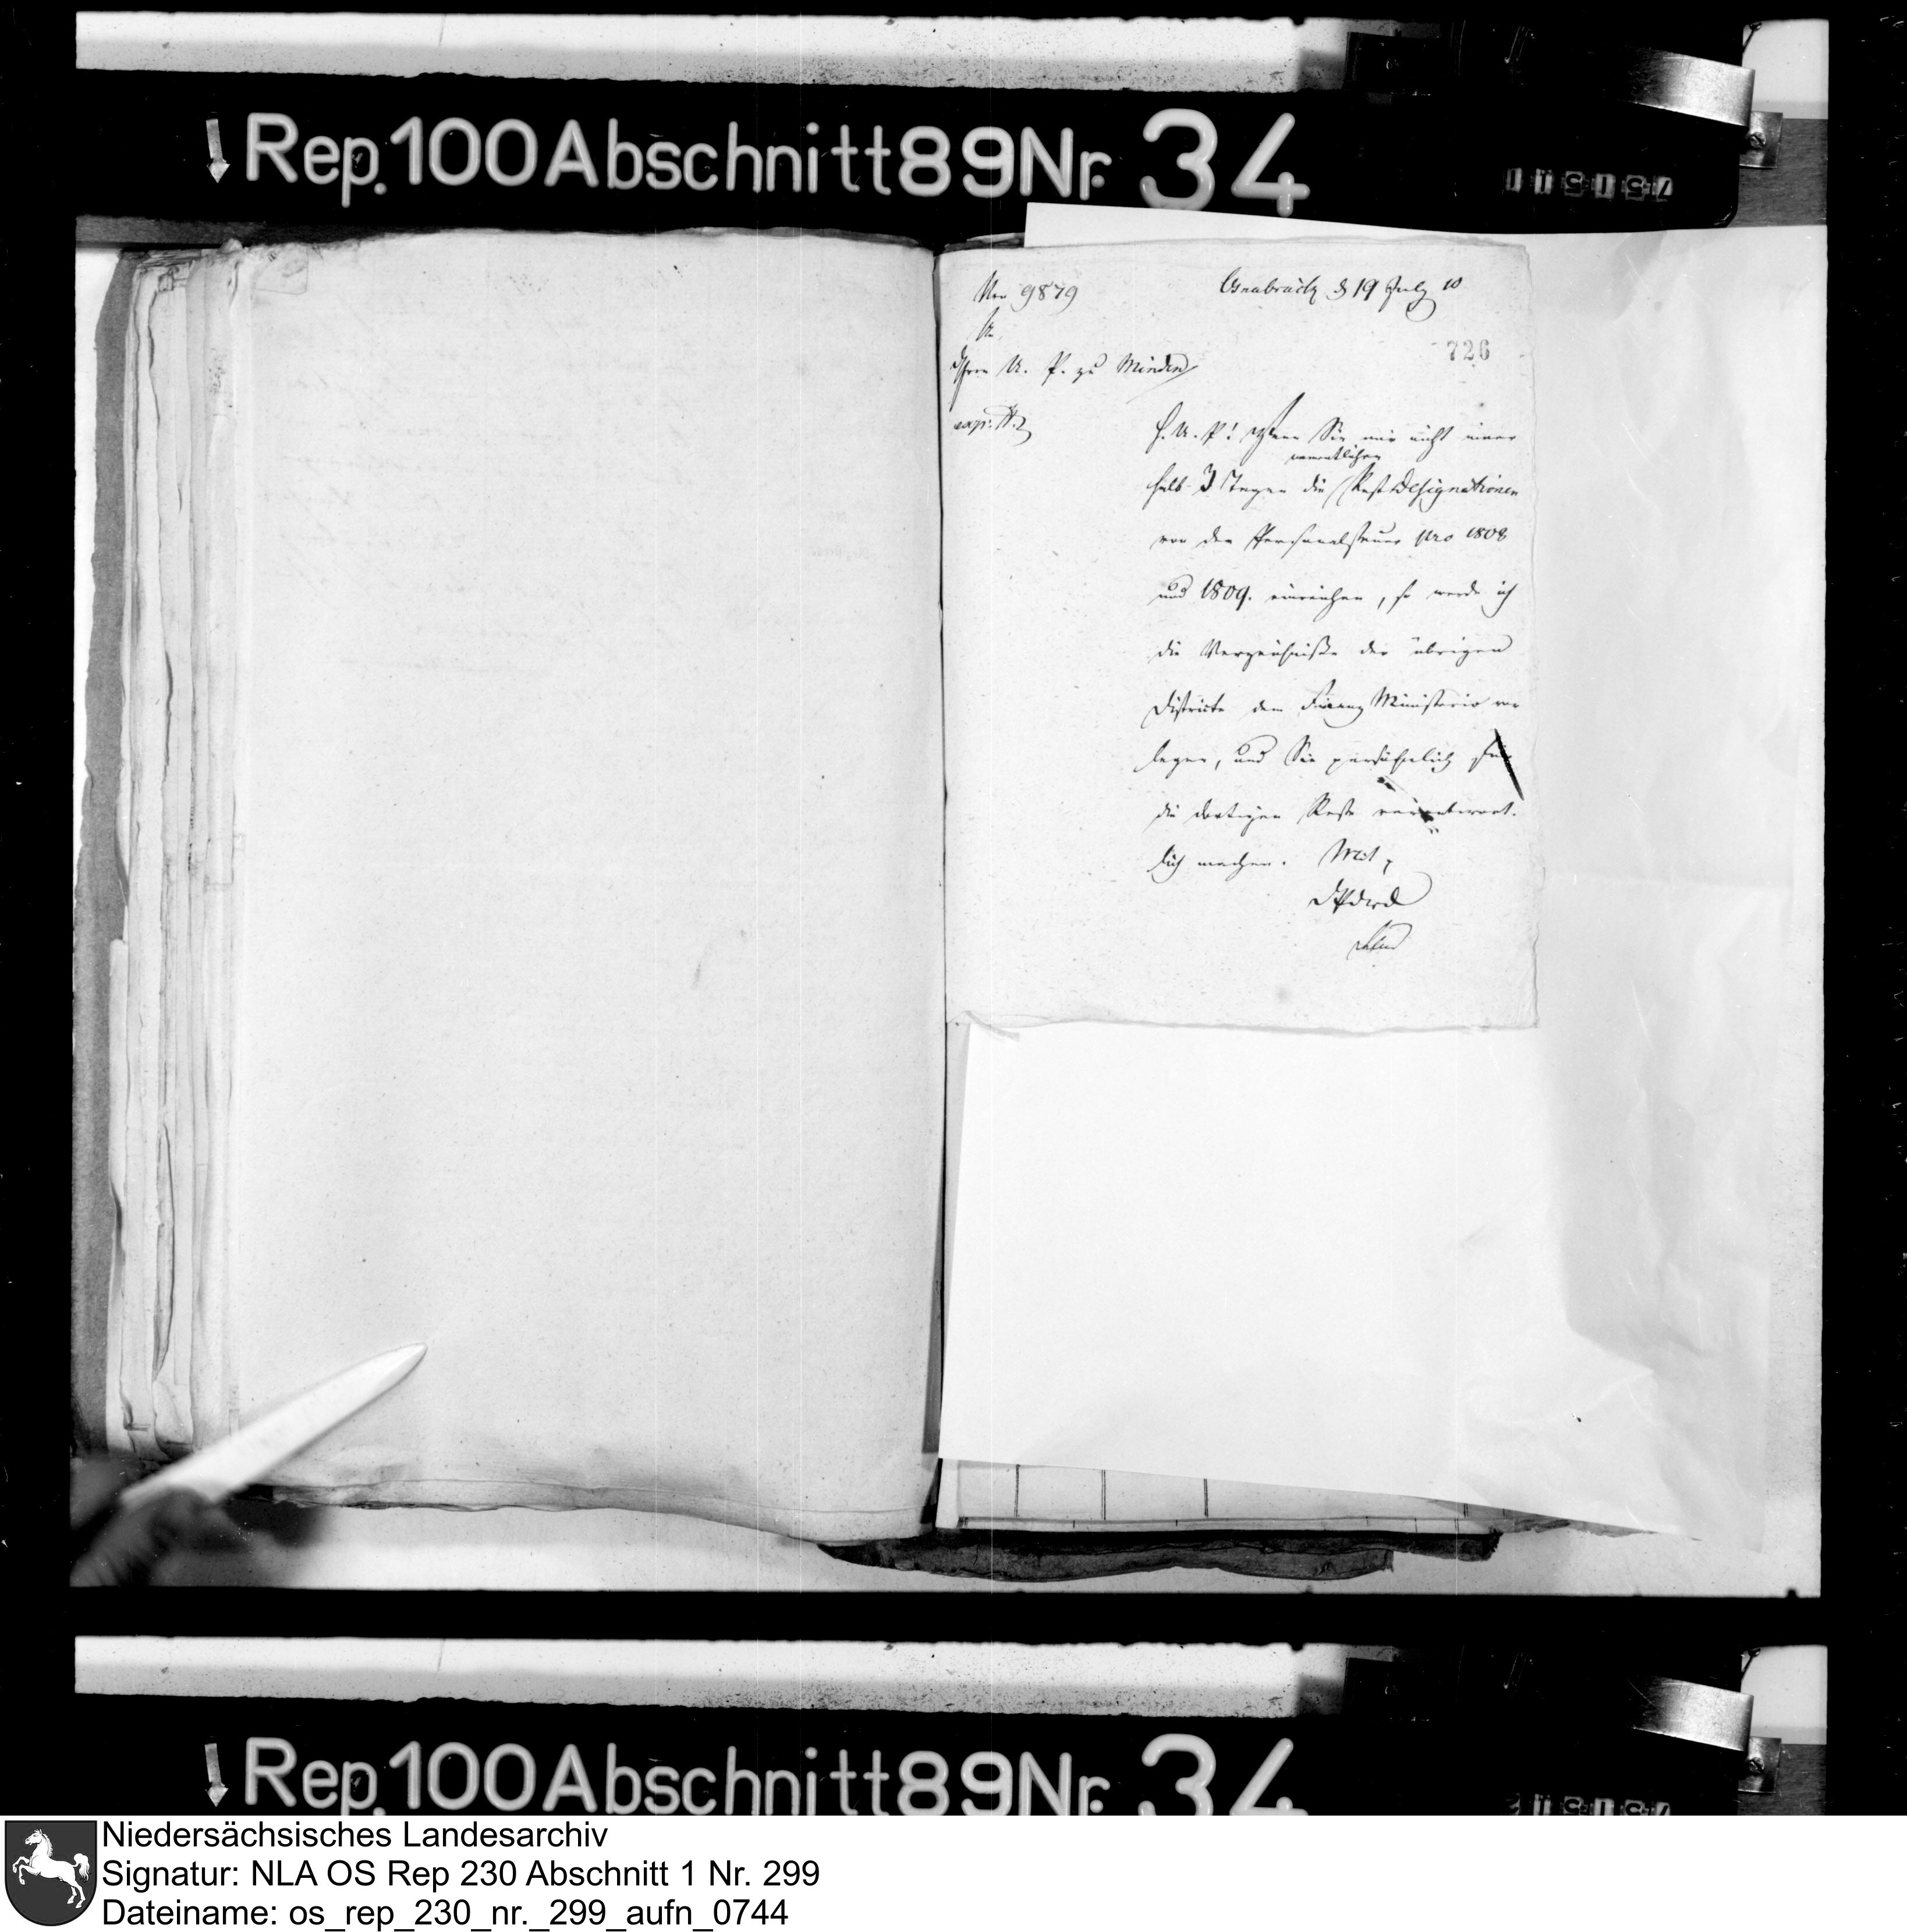 Rep. 100 Abschnitt 89 Nr. 34
Nro 9879
Osnabrück d 19 July 10
726
An
Herrn U. P. zu Minden
H. U. P! Wenn Sie mir nicht inner
namentlichen
halb 3 Tagen die Rest Designationen
von der Personalsteuer pro 1808
und 1809. einreichen, so werde ich
die Verzeichniße der übrigen
Districte dem Finanz Ministerio vor
legen, und Sie persönlich für
die dortigen Reste verantwort-
lich machen. Mit
Rep. 100 Abschnitt 89 Nr. 34
Niedersächsisches Landesarchiv
Signatur: NLA OS Rep 230 Abschnitt 1 Nr. 299
Dateiname: os_rep_230_nr._299_aufn_0744